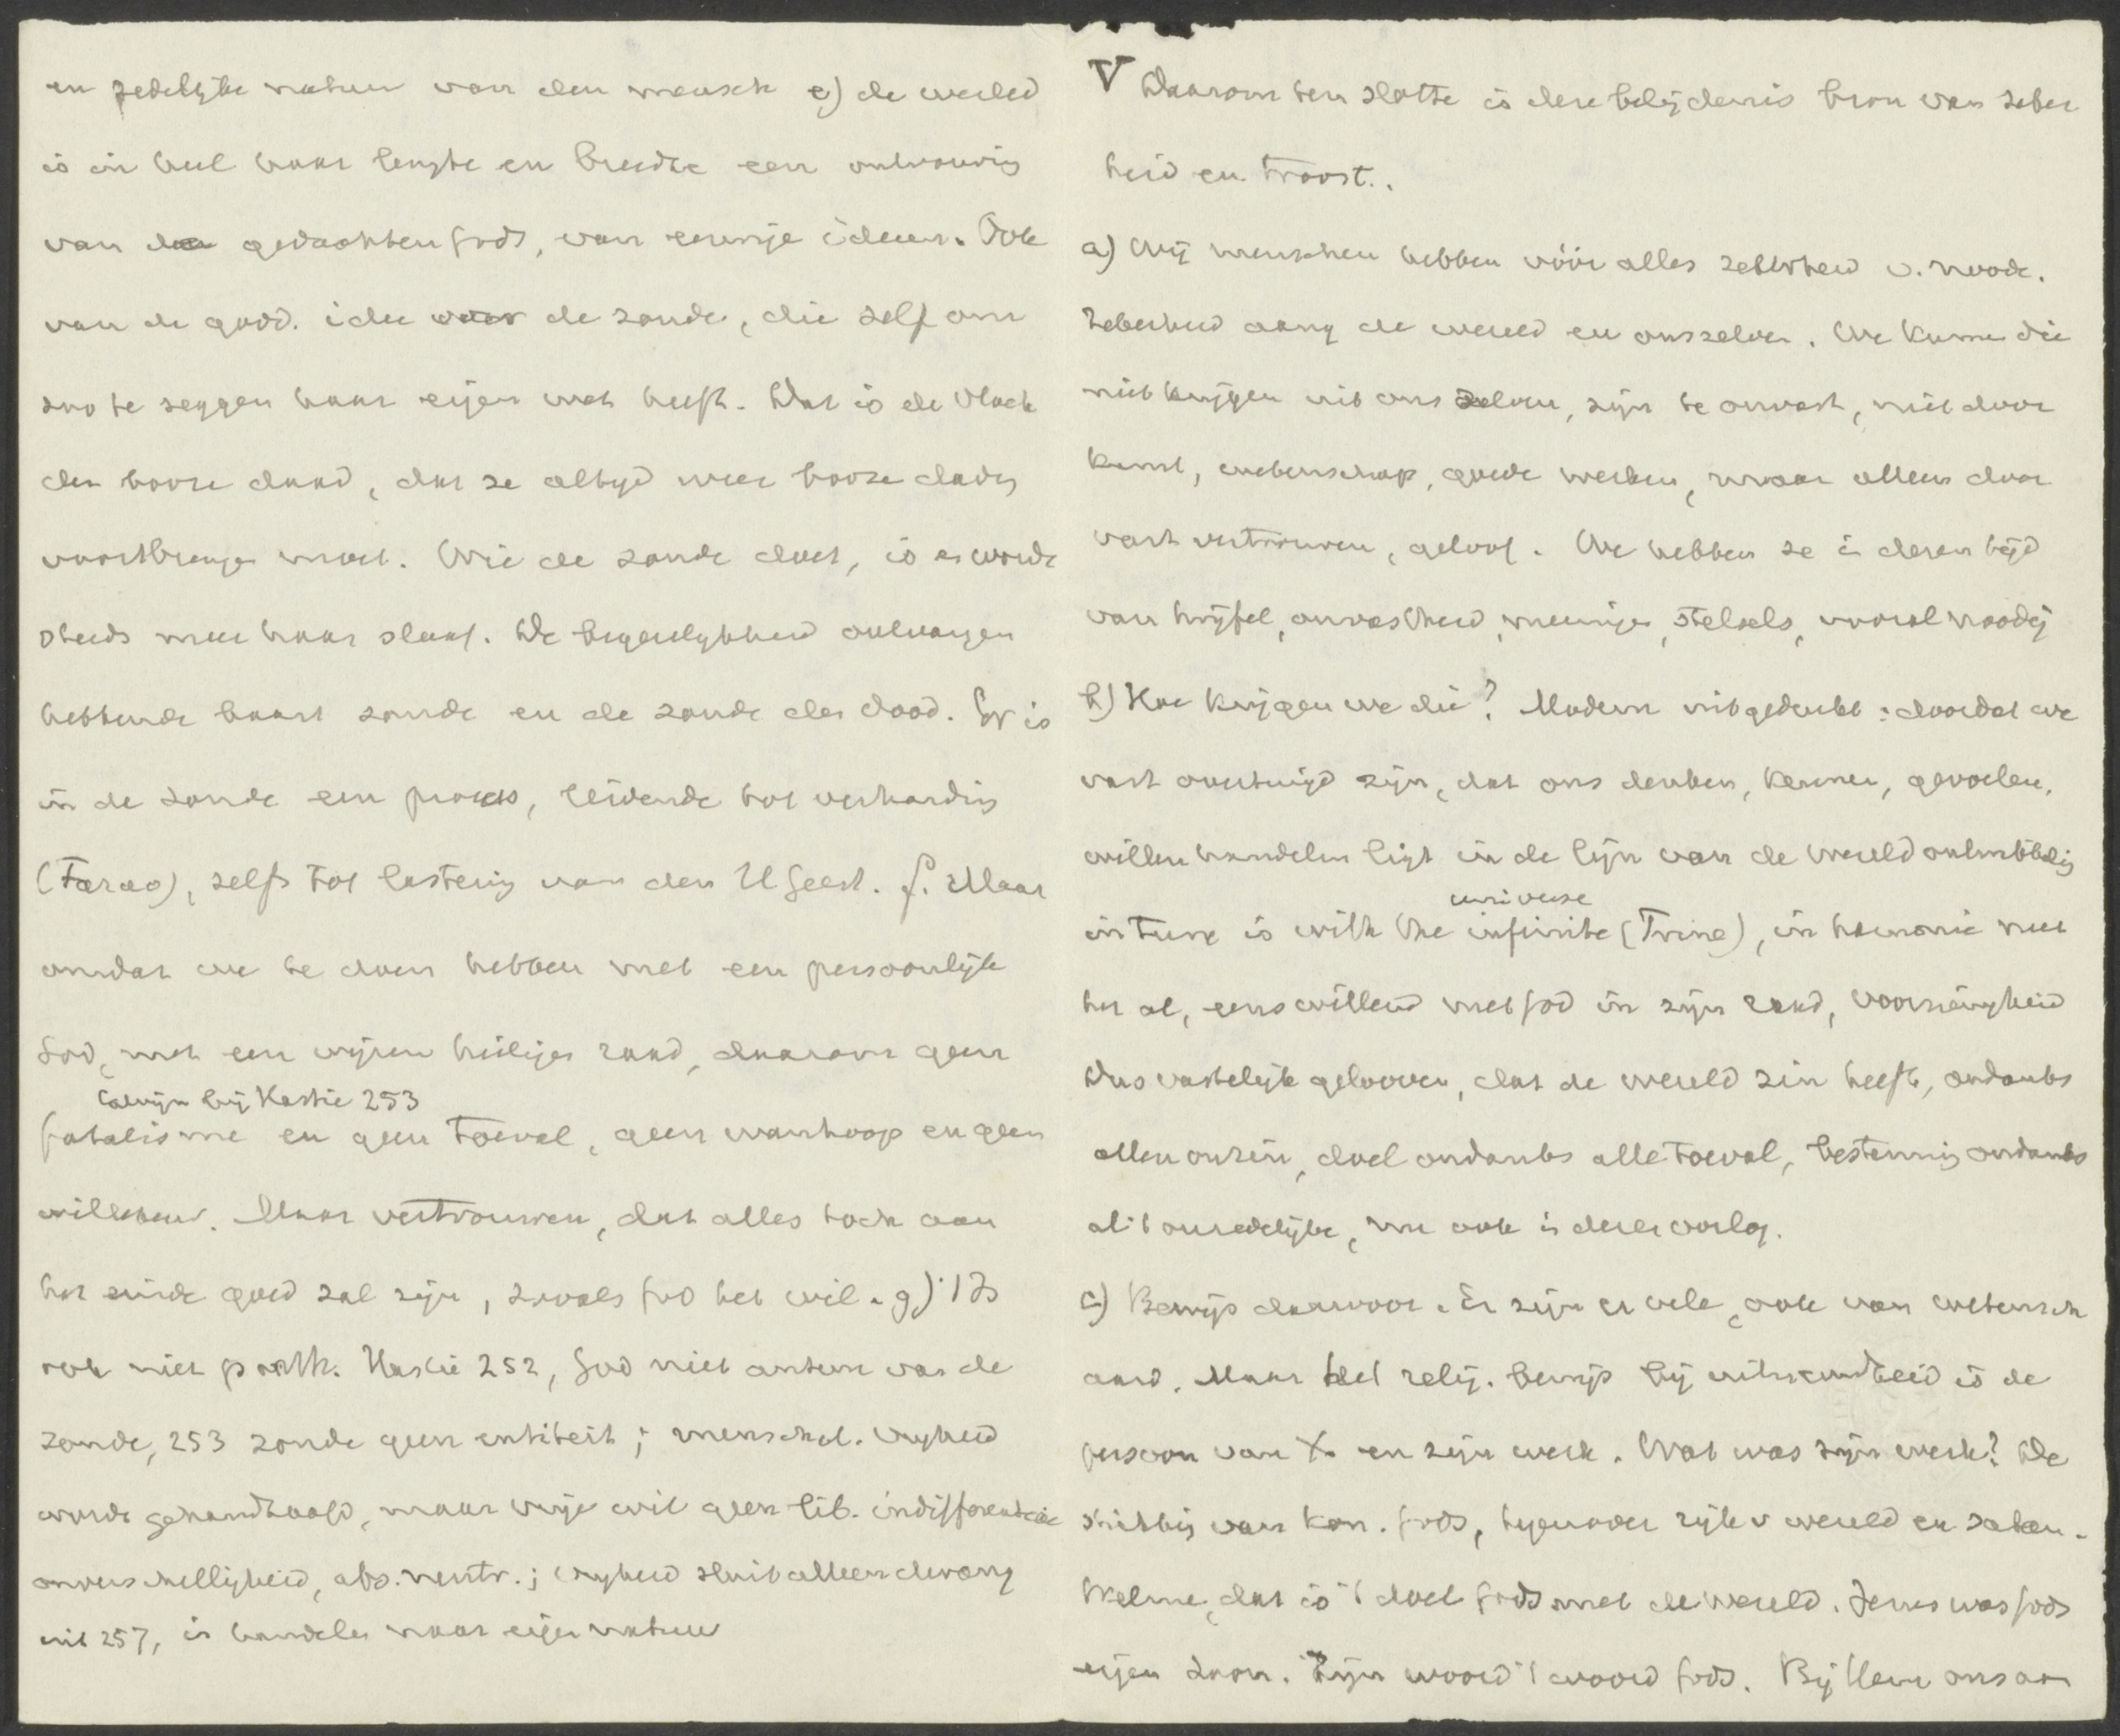 en zedelijke natuur van den mensch e) de wereld
is in heel haar lengte en breedte een ontvouwing
van de gedachten Gods, van eeuwige ideeen. Ook
van de godd. idee over de zonde, die zelf om
zoo te zeggen haar eigen wet heeft. Dat is de vloek
der booze daad, dat ze altijd weer booze daden
voortbrengen moet. Wie de zonde doet, is en wordt
steeds meer haar slaaf. De begeerlijkheid ontvangen
hebbende baart zonde en de zonde den dood. Er is
in de zonde een proces, leidende tot verharding
(Farao), zelfs tot lastering van den H Geest. f. Maar
omdat we te doen hebben met een persoonlijke
God, met een wijzen heiligen raad, daarom geen
Calvijn bij Hastie 253
fatalisme en geen toeval, geen wanhoop en geen
willekeur. Maar vertrouwen, dat alles toch aan
het einde goed zal zijn, zooals God het wil. g) 't Is
ook niet panth. Hastie 252, God niet auteur van de
zonde, 253 zonde geen entiteit; menschel. vrijheid
wordt gehandhaafd, maar vrije wil geen lib. indifferentiae
onverschilligheid, abs. neutr.; vrijheid sluit alleen dwang
uit 257, is handelen naar eigen natuur
V Daarom ten slotte is deze belijdenis bron van zeker
heid en troost.
a) Wij menschen hebben vóór alles zekerheid v. noode.
Zekerheid aang de wereld en onszelven. We kunnen die
niet krijgen uit ons zelven, zijn te onvast, niet door
kunst, wetenschap, goede werken, maar alleen door
vast vertrouwen, geloof. We hebben ze in dezen tijd
van twijfel, onvastheid, meeningen, stelsels, vooral noodig
b) Hoe krijgen we die? Modern uitgedrukt: doordat we
vast overtuigd zijn, dat ons denken, kennen, gevoelen,
willen handelen ligt in de lijn van de wereldontwikkeling
universe
in tune is with the infinite (Trine), in harmonie met
het al, eenswillend met God in zijn raad, voorzienigheid
Dus vastelijk gelooven, dat de wereld zin heeft, ondanks
allen onzin, doel ondanks alle toeval, bestemming ondanks
al 't onredelijke, nu ook in dezen oorlog.
c) Bewijs daarvoor. Er zijn er vele, ook van wetensch
aard. Maar het relig. bewijs bij uitnemendheid is de
persoon van X. en zijn werk. Wat was zijn werk? De
stichting van kon. Gods, tegenover rijk v wereld en satan.
Welnu, dat is 't doel Gods met de wereld. Jezus was Gods
eigen Zoon. Zijn woord 't woord Gods. Bij Hem ons aan